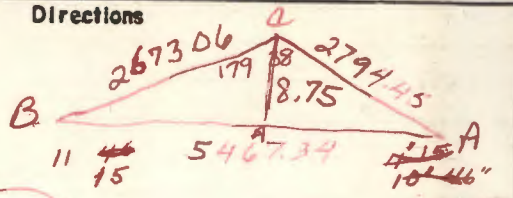 Directions
C
2673.06
2794.45
179 38
8.75
B
A
A
11 46
5467.34
4" 15
15
10" 46"